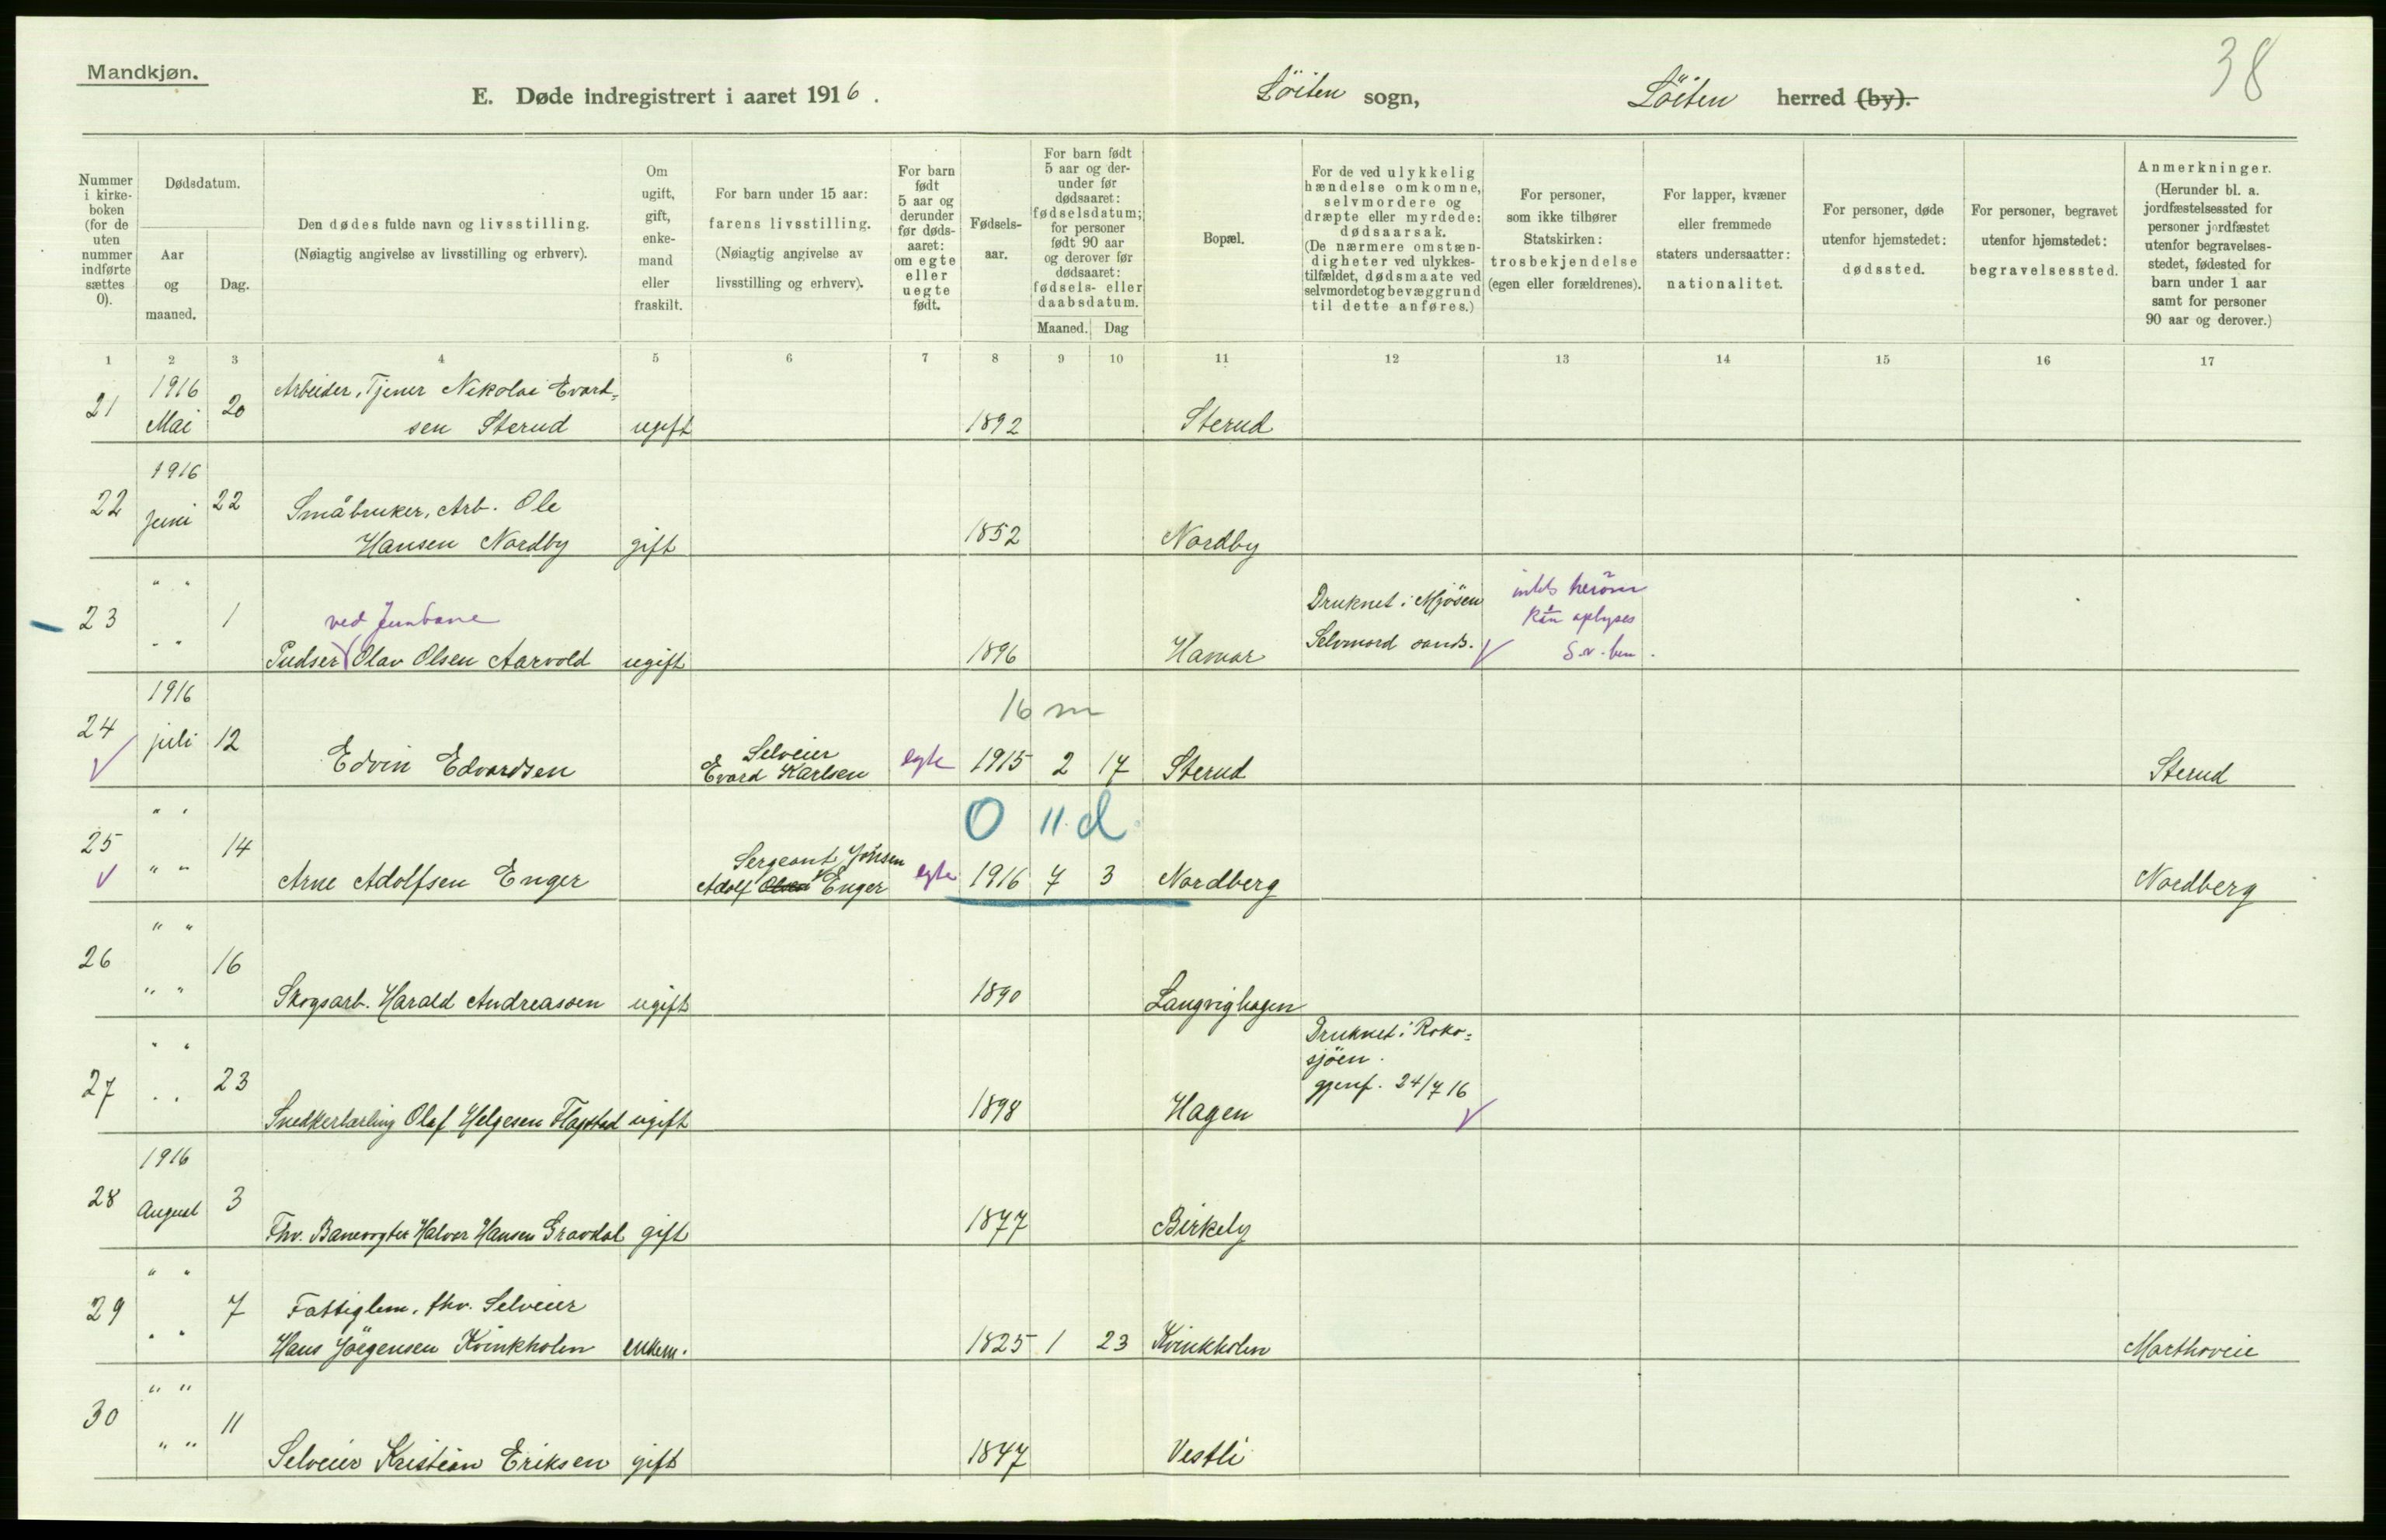 Mandkjøn.
38
E. Døde indregistrert i aaret 1916.
Löiten sogn,
Löiten herred (by).
Nummer i kirke-boken (for de uten nummer indførte sættes 0).
Dødsdatum.
Aar og maaned.
Dag.
Den dødes fulde navn og livsstilling.
(Nøiagtig angivelse av livsstilling og erhverv).
Om ugift, gift, enke-mand eller fraskilt.
For barn under 15 aar:
farens livsstilling.
(Nøiagtig angivelse av livsstilling og erhverv).
For barn født 5 aar og derunder før døds-aaret: om egte eller uegte født.
Fødsels-aar.
For barn født 5 aar og der-under før dødsaaret: fødselsdatum; for personer født 90 aar og derover før dødsaaret: fødsels- eller daabsdatum.
Maaned. Dag
Bopæl.
For de ved ulykkelig hændelse omkomne, selvmordere og dræpte eller myrdede: dødsaarsak.
(De nærmere omstæn-digheter ved ulykkes-tilfældet, dødsmaate ved selvmordet og bevæggrund til dette anføres.)
For personer, som ikke tilhører Statskirken: trosbekjendelse (egen eller forældrenes).
For lapper, kvæner eller fremmede staters undersaatter: nationalitet.
For personer, døde utenfor hjemstedet: dødssted.
For personer, begravet utenfor hjemstedet: begravelsessted.
Anmerkninger.
(Herunder bl. a. jordfæstelsessted for personer jordfæstet utenfor begravelses-stedet, fødested for barn under 1 aar samt for personer 90 aar og derover.)
1 2 3 4 5 6 7 8 9 10 11 12 13 14 15 16 17
21 1916 Mai 20 Arbeider, Tjener Nikolai Evard=
sen Sterud ugift 1892 Sterud
22 1916 Juni 22 Småbruker, Arb. Ole
Hansen Nordby gift 1852 Nordby
23 " " " " 1 ved Jernbane
Pudser Olav Olsen Aarvold ugift 1896 Hamar
Druknet i Mjösen
Selvmord sands.
intet herom
kan oplyses
S.v. ben.
24 1916 juli 12 Edvin Edvardsen
Selveier
Evard Karlsen egte 1915 2 17 Sterud Sterud
16 m
25 " " " " 14 Arne Adolfsen Enger
Sergeant Jönsen
Adolf Olsen Enger egte 1916 7 3 Nordberg Nordberg
0 11. d.
26 " " " " 16 Skogsarb. Harald Andreassen ugift 1890 Langvighagen
27 " " " " 23 Snedkerlærling Olaf Helgesen Flagstad ugift 1898 Hagen
Druknet i Roko=
sjöen.
gjenf. 24/7 16
28 1916 August 3 Fhv. Banevogter Halvor Hansen Gravdal gift 1877 Birkely
29 " " " " 7 Fattiglem, fhv. Selveier
Hans Jörgensen Kvinkholen enkem. 1825 1 23 Kvinkholen
30 " " " " 11 Selveier Kristian Eriksen gift 1847 Vestli